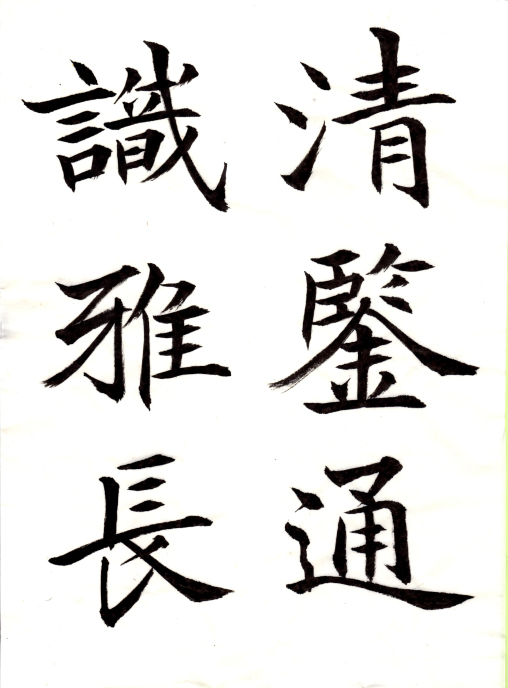 清鑒通
識雅長